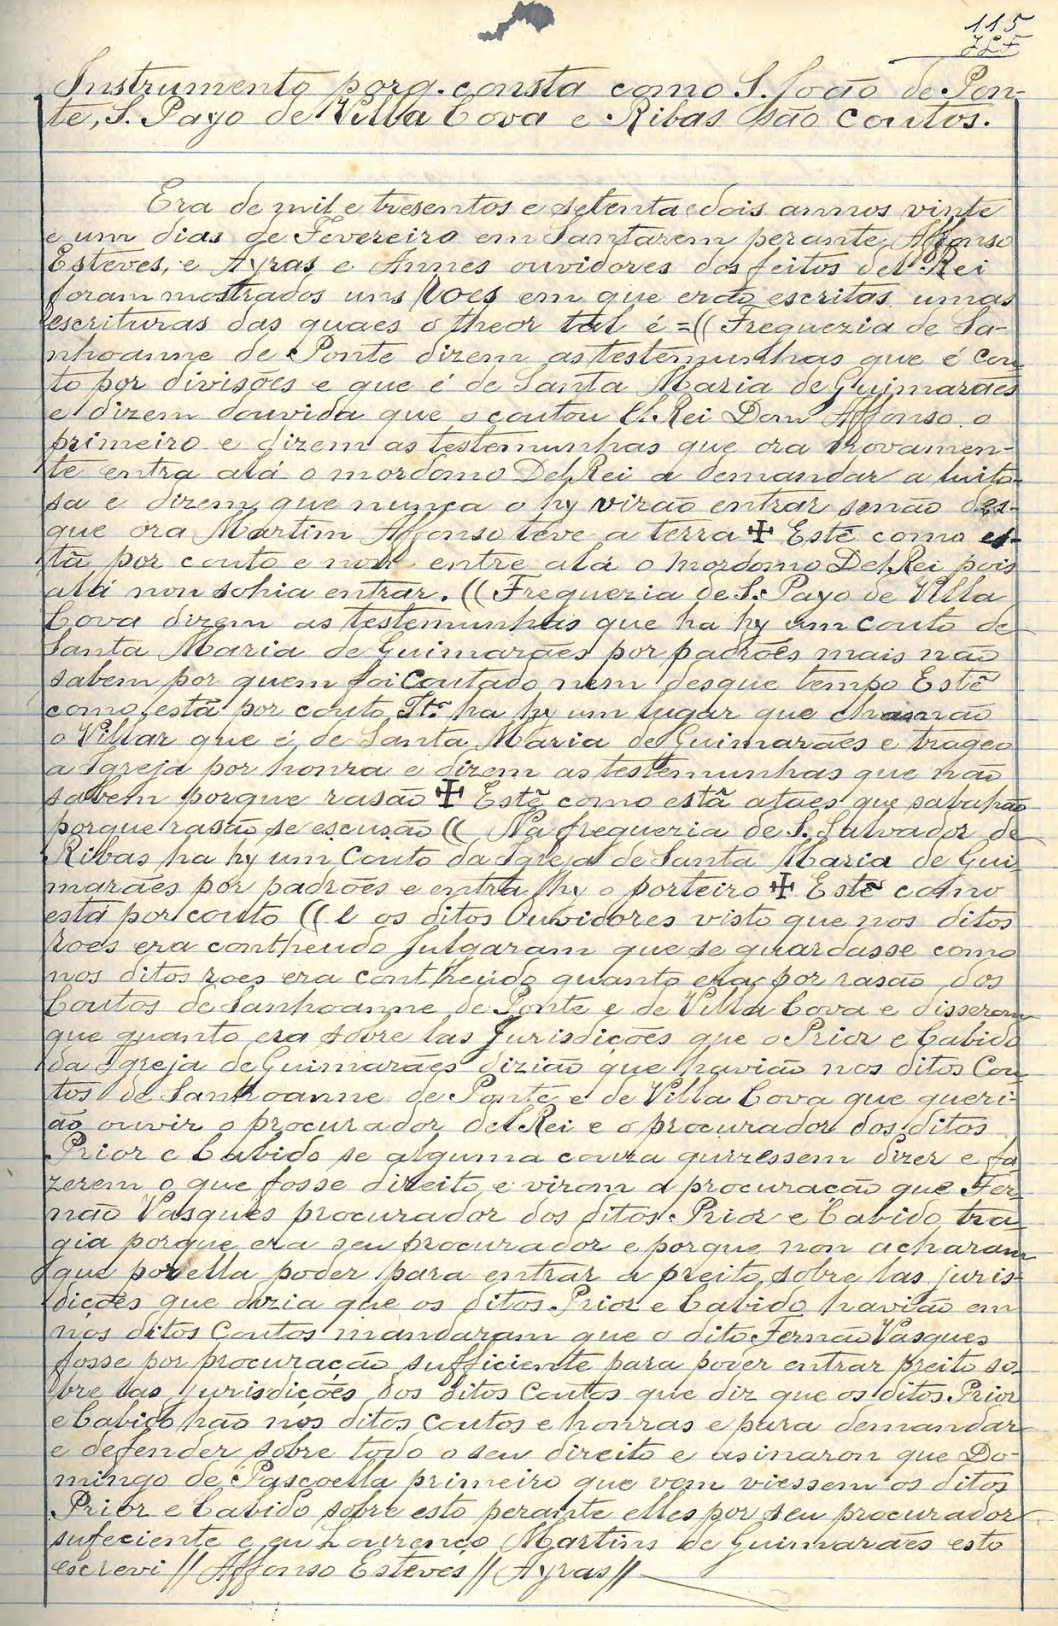 115
Instrumento porq. consta como S. João de Pon-
te, S. Payo de Villa Cova e Ribas são coutos.
Era de mil e tresentos e setenta e dois annos vinte
e um dias de Fevereiro em Santarem perante Affonso
Esteves, e Ayras, e Annes ouvidores dos feitos del Rei
foram mostrados uns roes em que erão escritas umas
escrituras das quaes o theor tal é =(( Freguezia de Sa-
nhoanne de Ponte dizem as testemunhas que é cou
to por divisões e que é de Santa Maria de Guimarães
e dizem douvida que o coutou El Rei Dom Affonso o
primeiro e dizem as testemunhas que ora novamen-
te entra alá o mordomo Del Rei a demandar a luito-
sa e dizem que nunca o hy virão entrar senão des-
que ora Martim Affonso teve a terra ✠ Estê como es-
tã por couto e non entre alá o mordomo Del Rei pois
alá non sohia entrar. (( Freguezia de S. Payo de Villa
Cova dizem as testemunhas que ha hy um couto de
Santa Maria de Guimarães por padrões mais não
sabem por quem foi Coutado nem desque tempo Estê
como está por couto It. ha hy um lugar que chamão
o Villar que é de Santa Maria de Guimarães e trageo
a Igreja por honra e dizem as testemunhas que não
sabem porque rasão ✠ Estê como estã ataes que sabuhão
porque rasão se escusão (( Na freguezia de S. Salvador de
Ribas ha hy um Couto da Igreja de Santa Maria de Gui
marães por padrões e entra hy o porteiro ✠ Estê como
está por couto (( E os ditos Ouvidores visto que nos ditos
roes era contheudo julgaram que se guardasse como
nos ditos roes era contheudo quanto era por rasão dos
Coutos de Sanhoanne de Ponte e de Villa Cova e disseram
que quanto era sobre las Jurisdições que o Prior e Cabido
da Igreja de Guimarães dizião que havião nos ditos Cou
tos de Sanhoanne de Ponte e de Villa Cova que queri-
ão ouvir o procurador del Rei e o procurador dos ditos
Prior e Cabido se alguma couza quizessem dizer e fa
zerem o que fosse direito e viram a procuração que Fer-
não Vasques procurador dos ditos Prior e Cabido tra-
gia porque era seu procurador e porque non acharam
que por ella poder para entrar a preito sobre las juris-
dições que dizia que os ditos Prior e Cabido havião em
nos ditos Coutos mandaram que o dito Fernão Vasques
fosse por procuração sufficiente para poder entrar preito so-
bre las jurisdições dos ditos Coutos que diz que os ditos Prior
e Cabido hão nos ditos coutos e honras e para demandar
e defender sobre todo o seu direito e asinaron que Do-
mingo de Pascoella primeiro que vem viessem os ditos
Prior e Cabido sobre esto perante elles por seu procurador
sufeciente e eu Lourenço Martins de Guimarães esto
escrevi // Affonso Esteves // Ayras //